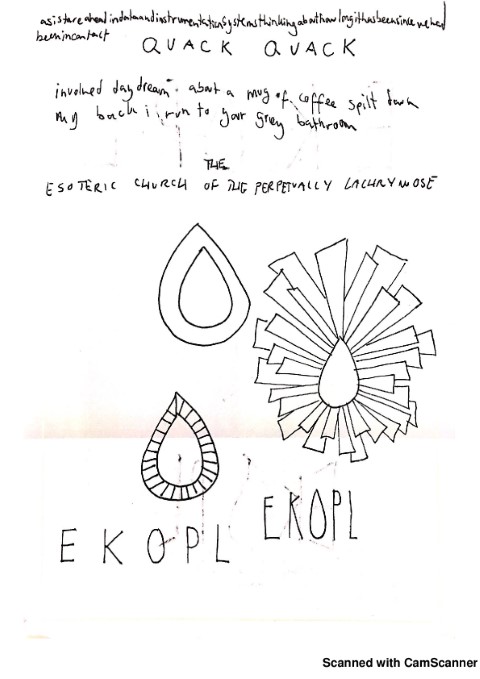 asistareaheadindataandinstrumentationsystemsthinkingabouthowlongithasbeensincewehad
beenincontact
QUACK QUACK
involved daydream: about a mug of coffee spilt down
my back i run to your grey bathroom
THE
ESOTERIC CHURCH OF THE PERPETUALLY LACHRYMOSE
EKOPL
EKOPL
Scanned with CamScanner